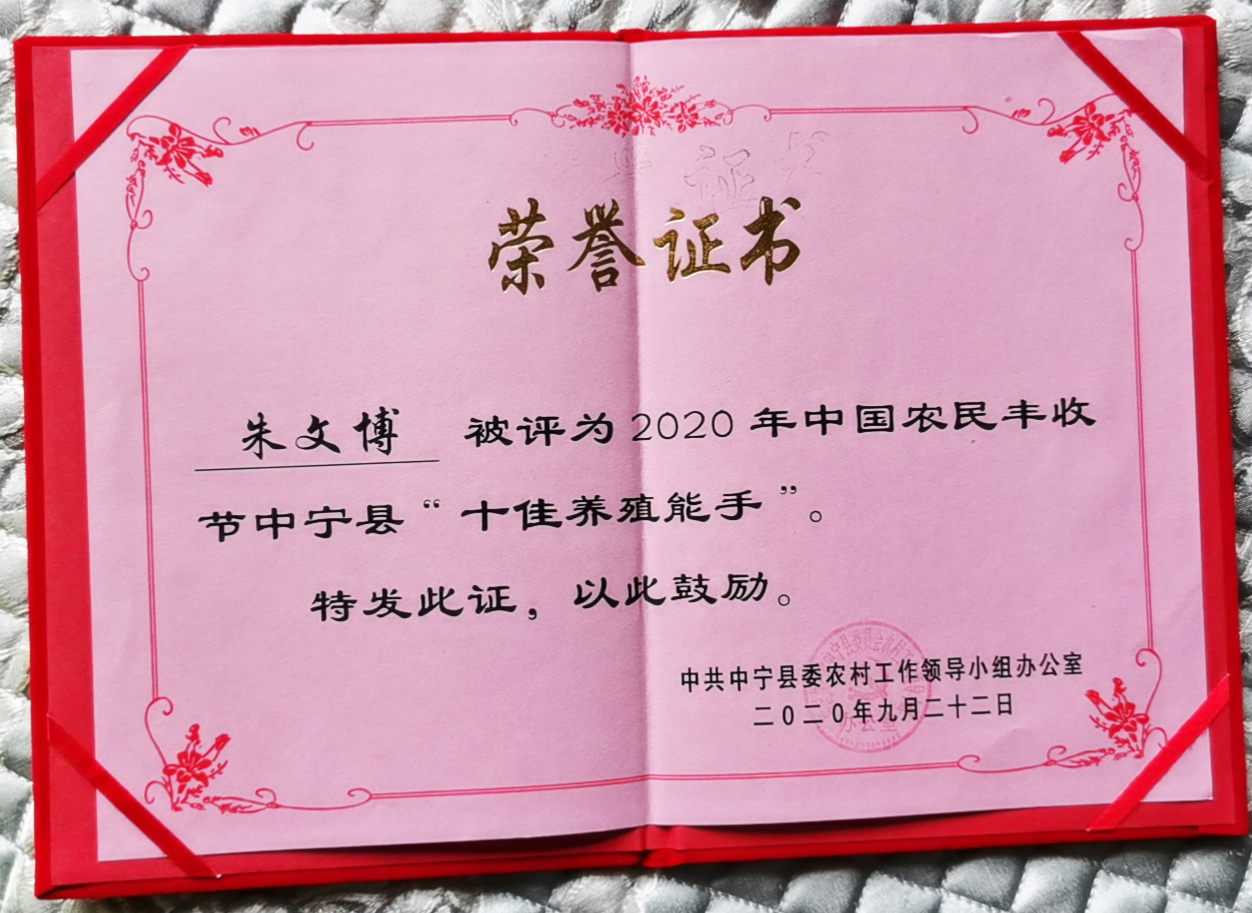 荣誉证书
朱文博 被评为2020年中国农民丰收
节中宁县“十佳养殖能手”。
特发此证，以此鼓励。
中共中宁县委农村工作领导小组办公室
二0二0年九月二十二日